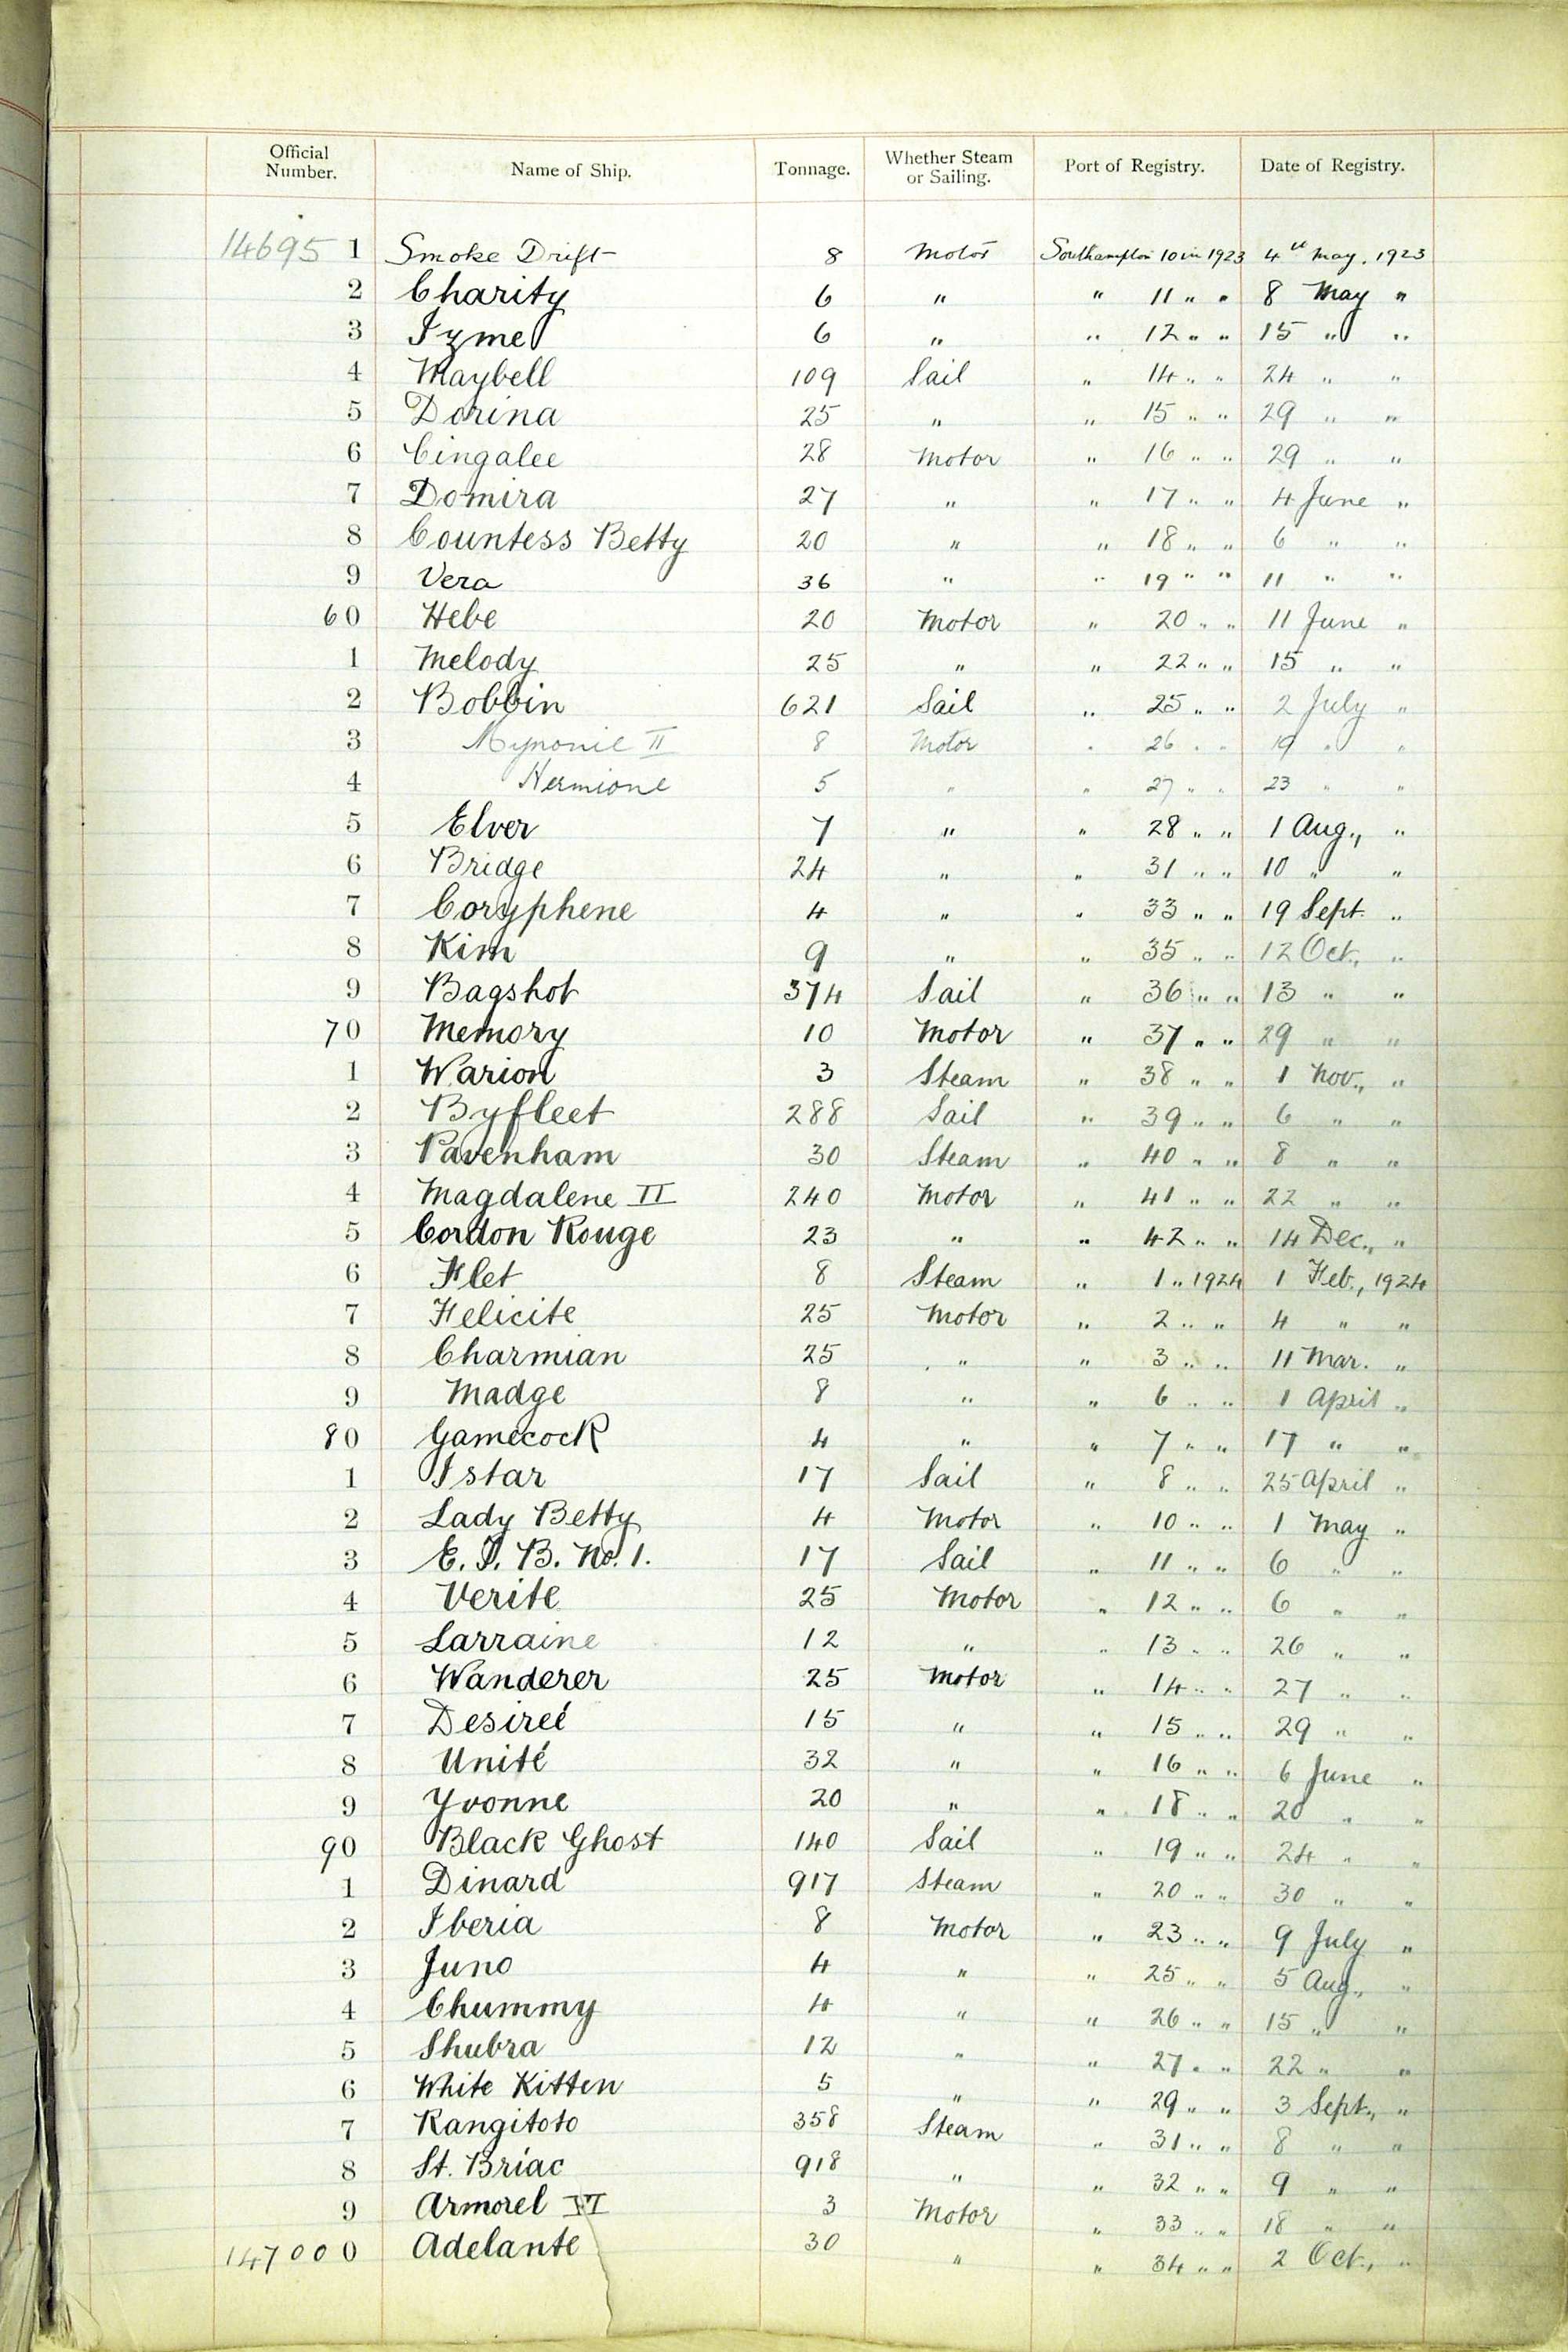 Official Number. Name of Ship. Tonnage. Whether Steam or Sailing. Port of Registry. Date of Registry.
146951 Smoke Drift 8 Motor Southampton 10 in 1923 4th May. 1923
2 Charity 6 " " 11 " " 8 May "
3 Izme 6 " " 12 " " 15 " "
4 Maybell 109 Sail " 14 " " 24 " "
5 Dorina 25 " " 15 " " 29 " "
6 Cingalee 28 Motor " 16 " " 29 " "
7 Domira 27 " " 17 " " 4 June "
8 Countess Betty 20 " " 18 " " 6 " "
9 Vera 36 " " 19 " " 11 " "
60 Hebe 20 Motor " 20 " " 11 June "
1 Melody 25 " " 22 " " 15 " "
2 Bobbin 621 Sail " 25 " " 2 July "
3 II 8 Motor " 26 " " 19 " "
4 Hermione 5 " " 27 " " 23 " "
5 Elver 7 " " 28 " " 1 Aug., "
6 Bridge 24 " " 31 " " 10 " "
7 Coryphene 4 " " 33 " " 19 Sept. "
8 Kim 9 " " 35 " " 12 Oct., "
9 Bagshot 374 Sail " 36 " " 13 " "
70 Memory 10 Motor " 37 " " 29 " "
1 Warion 3 Steam " 38 " " 1 Nov., "
2 Byfleet 288 Sail " 39 " " 6 " "
3 Pavenham 30 Steam " 40 " " 8 " "
4 Magdalene II 240 Motor " 41 " " 22 " "
5 Cordon Rouge 23 " " 42 " " 14 Dec., "
6 Flet 8 Steam " 1 " 1924 1 Feb., 1924
7 Felicite 25 Motor " 2 " " 4 " "
8 Charmian 25 " " 3 " " 11 Mar. "
9 Madge 8 " " 6 " " 1 April "
80 Gamecock 4 " " 7 " " 17 " "
1 Istar 17 Sail " 8 " " 25 April "
2 Lady Betty 4 Motor " 10 " " 1 May "
3 E. I. B. No. 1. 17 Sail " 11 " " 6 " "
4 Verite 25 Motor " 12 " " 6 " "
5 Larraine 12 " " 13 " " 26 " "
6 Wanderer 25 Motor " 14 " " 27 " "
7 Desireé 15 " " 15 " " 29 " "
8 Unité 32 " " 16 " " 6 June "
9 Yvonne 20 " " 18 " " 20 " "
90 Black Ghost 140 Sail " 19 " " 24 " "
1 Dinard 917 Steam " 20 " " 30 " "
2 Iberia 8 Motor " 23 " " 9 July "
3 Juno 4 " " 25 " " 5 Aug., "
4 Chummy 4 " " 26 " " 15 " "
5 Shubra 12 " " 27 " " 22 " "
6 White Kitten 5 " " 29 " " 3 Sept., "
7 Rangitoto 358 Steam " 31 " " 8 " "
8 St. Briac 918 " " 32 " " 9 " "
9 Armorel VI 3 Motor " 33 " " 18 " "
147000 Adelante 30 " " 34 " " 2 Oct., "